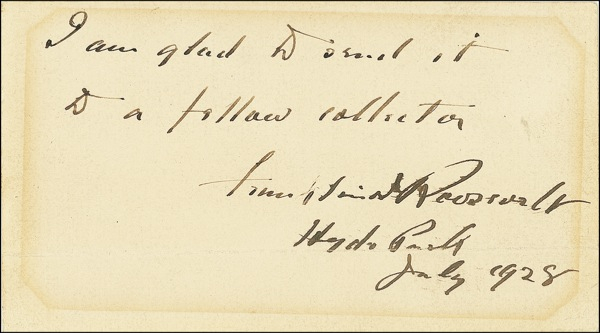 I am glad to send it
to a fellow collector
Franklin D Roosevelt
Hyde Park
July 1928